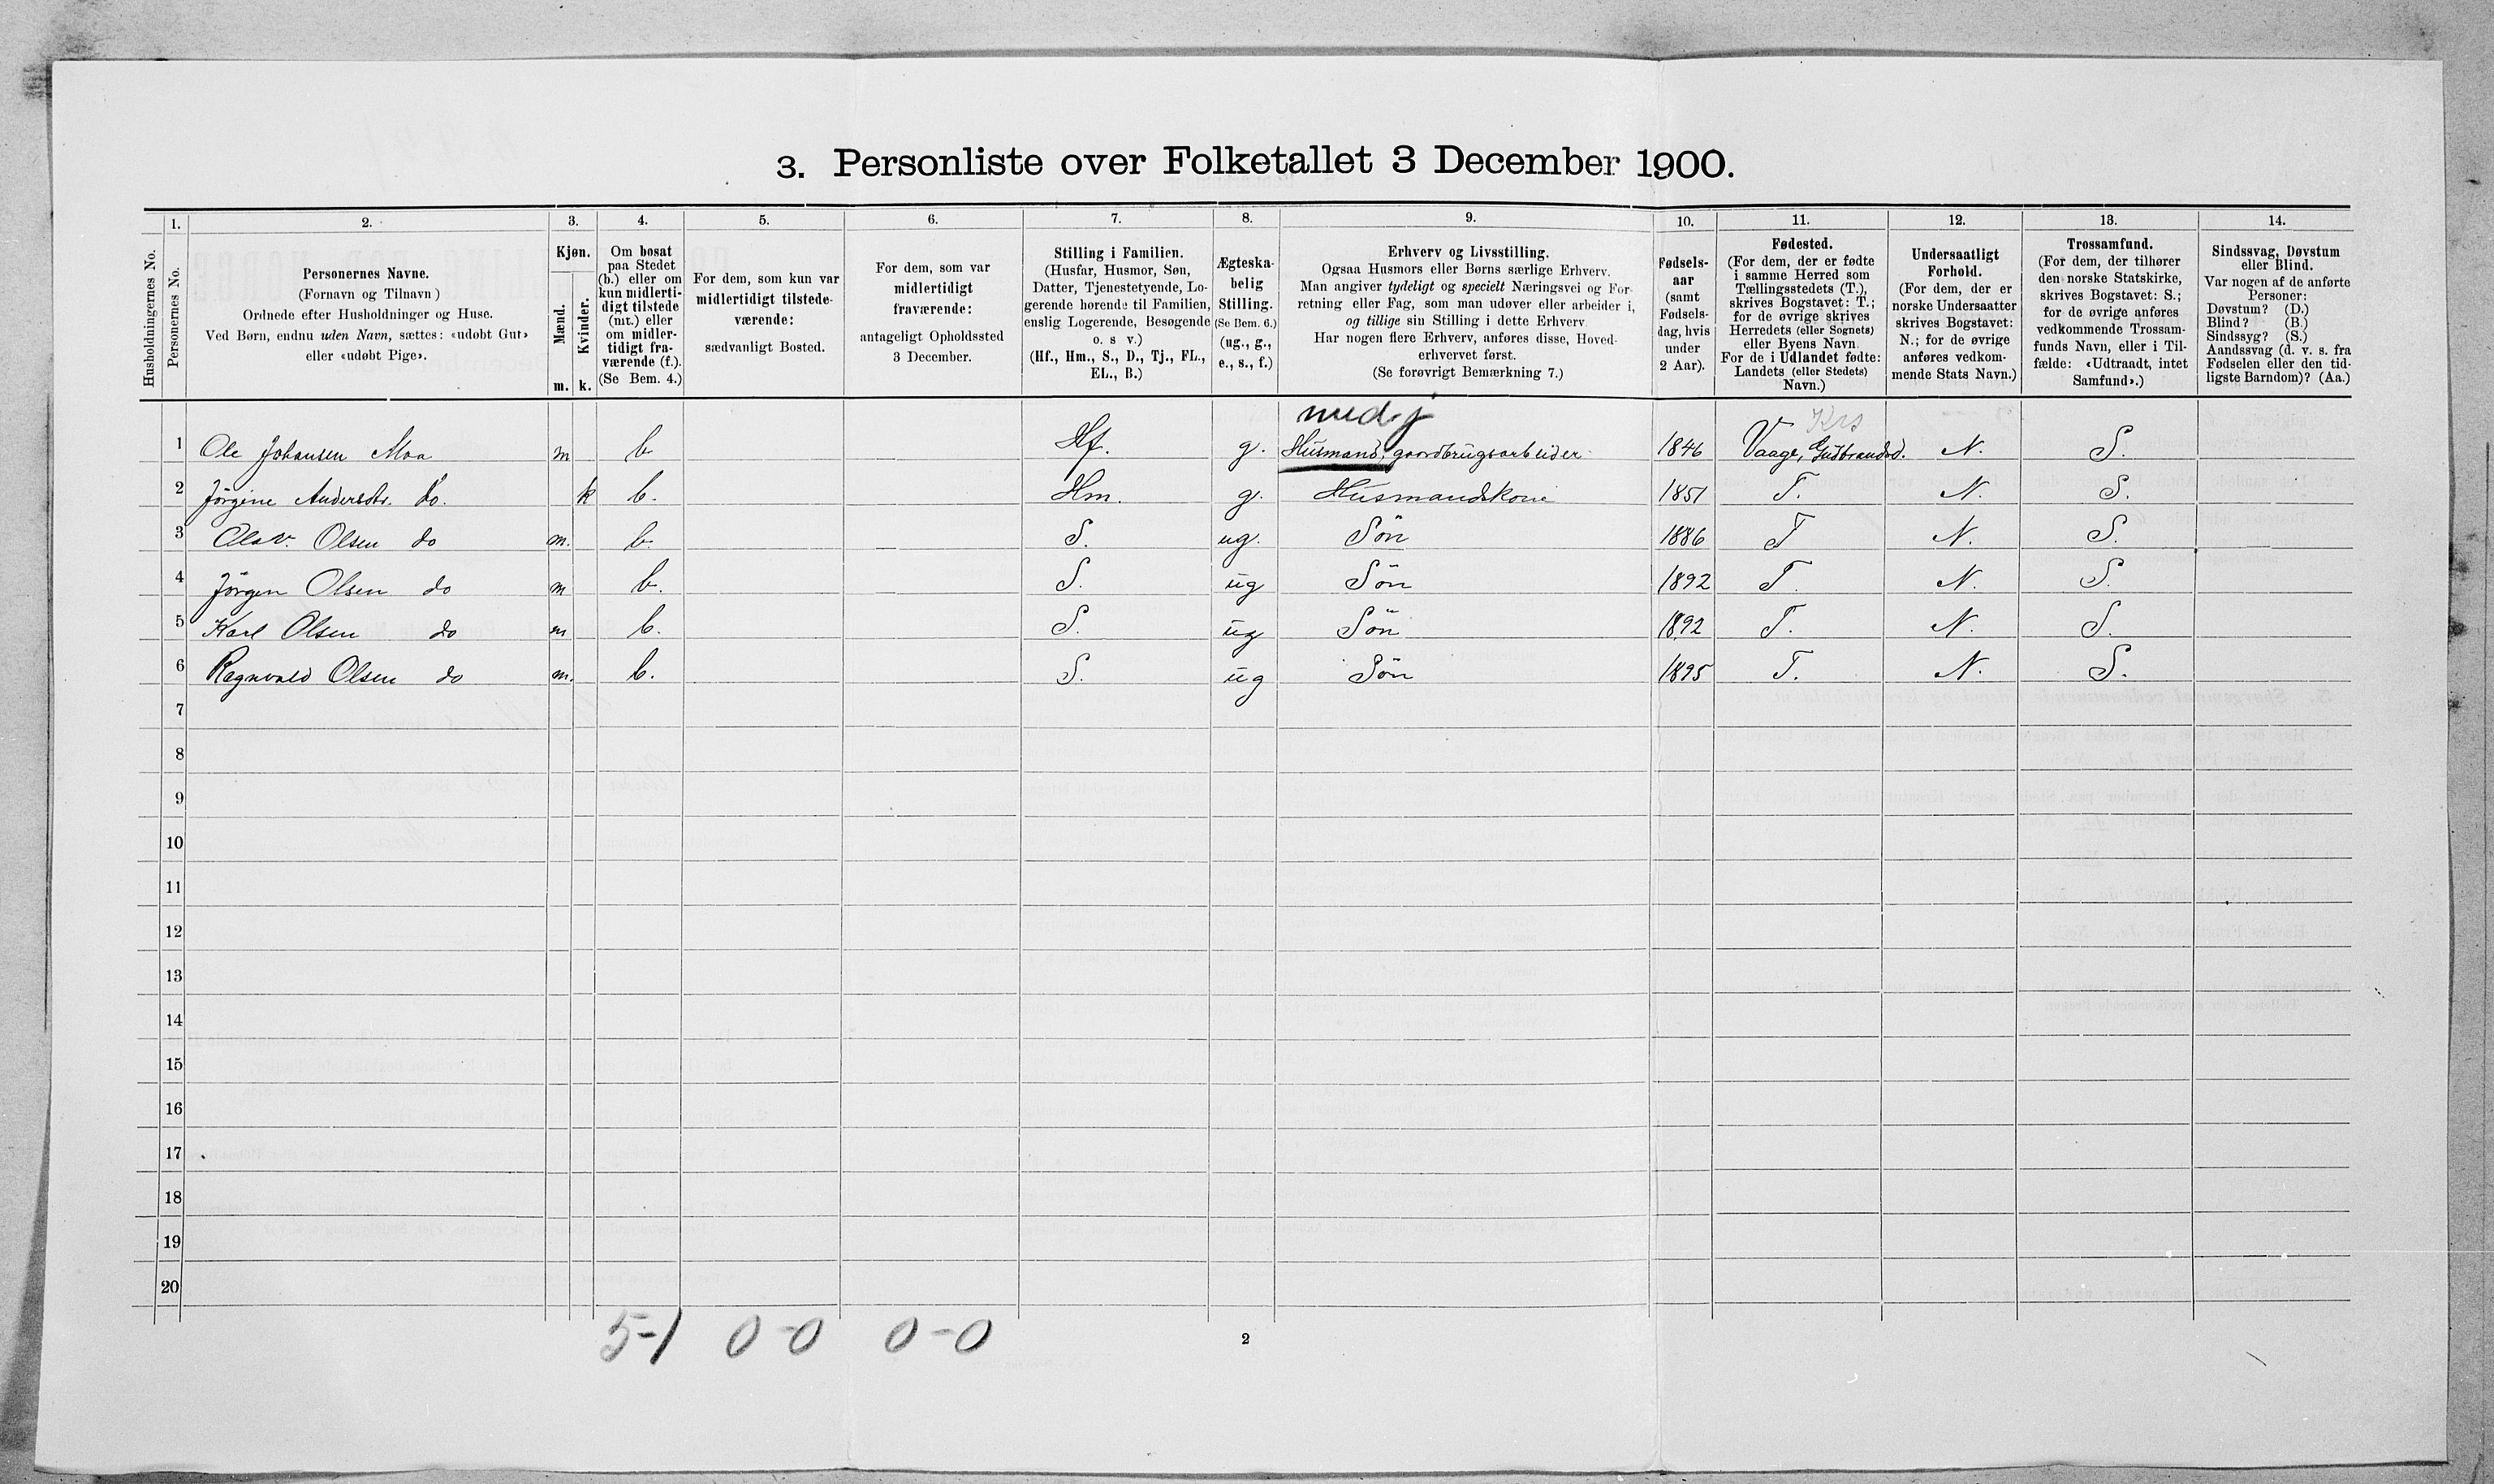 3. Personliste over Folketallet 3 December 1900.
1. 2. 3. 4. 5. 6. 7. 8. 9. 10. 11. 12. 13. 14.
Husholdningernes No.
Personernes No.
Personernes Navne.
(Fornavn og Tilnavn)
Ordnede efter Husholdninger og Huse.
Ved Børn, endnu uden Navn, sættes: «udøbt Gut»
eller «udøbt Pige».
Kjøn.
Mænd.
Kvinder.
m. k.
Om bosat
paa Stedet
(b.) eller om
kun midlerti-
digt tilstede
(mt.) eller
om midler-
tidigt fra-
værende (f.).
(Se Bem. 4.)
For dem, som kun var
midlertidigt tilstede-
værende:
sædvanligt Bosted.
For dem, som var
midlertidigt
fraværende:
antageligt Opholdssted
3 December.
Stilling i Familien.
(Husfar, Husmor, Søn,
Datter, Tjenestetyende, Lo-
gerende hørende til Familien,
enslig Logerende, Besøgende
o. s v.)
(Hf., Hm., S., D., Tj., FL.,
EL., B.)
Ægteska-
belig
Stilling.
(Se Bem. 6.)
(ug., g.,
e., s., f.)
Erhverv og Livsstilling.
Ogsaa Husmors eller Børns særlige Erhverv.
Man angiver tydeligt og specielt Næringsvei og For-
retning eller Fag, som man udøver eller arbeider i,
og tillige sin Stilling i dette Erhverv
Har nogen flere Erhverv, anføres disse, Hoved-
erhvervet først.
(Se forøvrigt Bemærkning 7.)
Fødsels-
aar
(samt
Fødsels-
dag, hvis
under
2 Aar).
Fødested.
(For dem, der er fødte
i samme Herred som
Tællingsstedets (T.),
skrives Bogstavet: T.;
for de øvrige skrives
Herredets (eller Sognets)
eller Byens Navn.
For de i Udlandet fødte:
Landets (eller Stedets)
Navn.)
Undersaatligt
Forhold.
(For dem, der er
norske Undersaatter
skrives Bogstavet:
N.; for de øvrige
anføres vedkom-
mende Stats Navn.)
Trossamfund.
(For dem, der tilhører
den norske Statskirke,
skrives Bogstavet: S.;
for de øvrige anføres
vedkommende Trossam-
funds Navn, eller i Til-
fælde: «Udtraadt, intet
Samfund».)
Sindssvag, Døvstum
eller Blind.
Var nogen af de anførte
Personer:
Døvstum? (D.)
Blind? (B.)
Sindssyg? (S.)
Aandssvag (d. v. s. fra
Fødselen eller den tid-
ligste Barndom)? (Aa.)
med j Krs
1 Ole Johansen Moa m b Hf. g. Husmand, gaardbrugsarbeider 1846 Vaage, Gudbrandsd. N. S.
2 Jörgine Andersdtr. do. k b. Hm. g. Husmandskone 1851 T. N. S.
3 Olav Olsen do m. b. S. ug. Sön 1886 T N. S.
4 Jörgen Olsen do m b. S. ug Sön 1892 T. N. S.
5 Karl Olsen do m b. S. ug Sön 1892 T. N. S.
6 Ragnvald Olsen do m. b. S. ug Sön 1895 T. N. S.
7
8
9
10
11
12
13
14
15
16
17
18
19
20
5-1 0-0 0-0
2